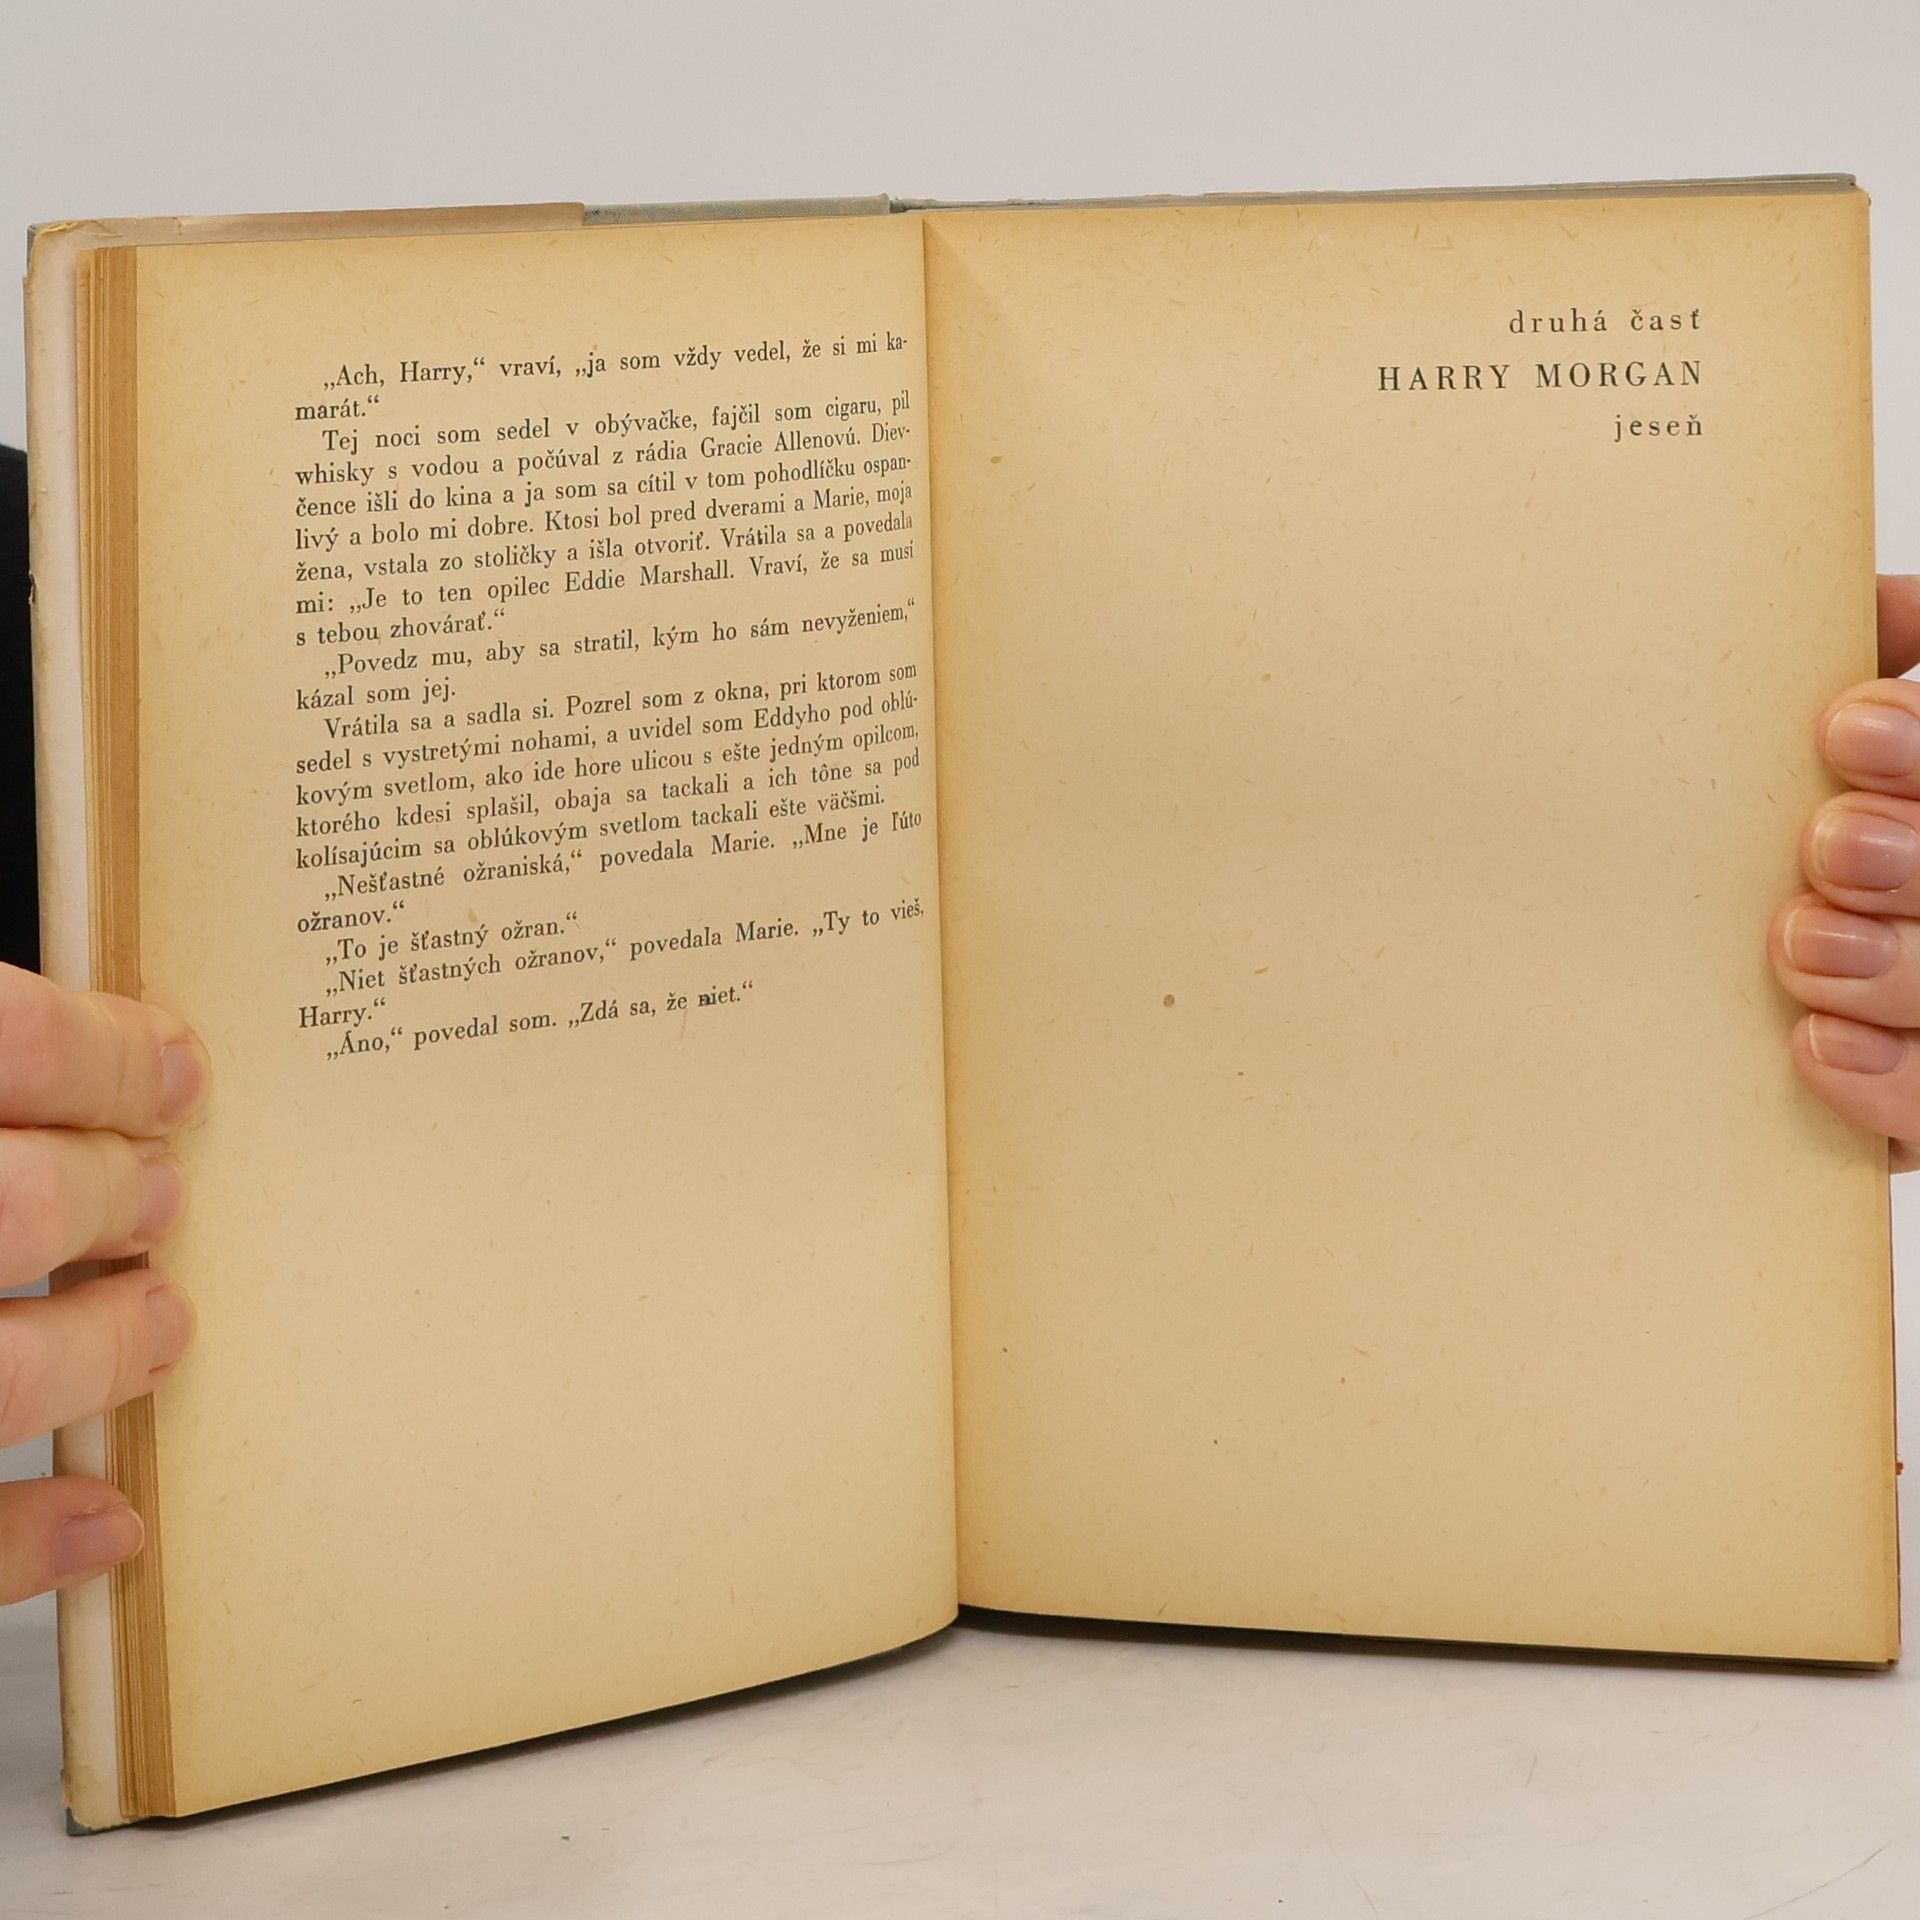 „Ach, Harry,“ vraví, „ja som vždy vedel, že si mi ka-
marát.“
Tej noci som sedel v obývačke, fajčil som cigaru, pil
whisky s vodou a počúval z rádia Gracie Allenovú. Diev-
čence išli do kina a ja som sa cítil v tom pohodlíčku ospan-
livý a bolo mi dobre. Ktosi bol pred dverami a Marie, moja
žena, vstala zo stoličky a išla otvoriť. Vrátila sa a povedala
mi: „Je to ten opilec Eddie Marshall. Vraví, že sa musí
s tebou zhovárať.“
„Povedz mu, aby sa stratil, kým ho sám nevyženiem,“
kázal som jej.
Vrátila sa a sadla si. Pozrel som z okna, pri ktorom som
sedel s vystretými nohami, a uvidel som Eddyho pod oblú-
kovým svetlom, ako ide hore ulicou s ešte jedným opilcom,
ktorého kdesi splašil, obaja sa tackali a ich tône sa pod
kolísajúcim sa oblúkovým svetlom tackali ešte väčšmi.
„Nešťastné ožraniská,“ povedala Marie. „Mne je ľúto
ožranov.“
„To je šťastný ožran.“
„Niet šťastných ožranov,“ povedala Marie. „Ty to vieš,
Harry.“
„Áno,“ povedal som. „Zdá sa, že niet.“
druhá časť
HARRY MORGAN
jeseň